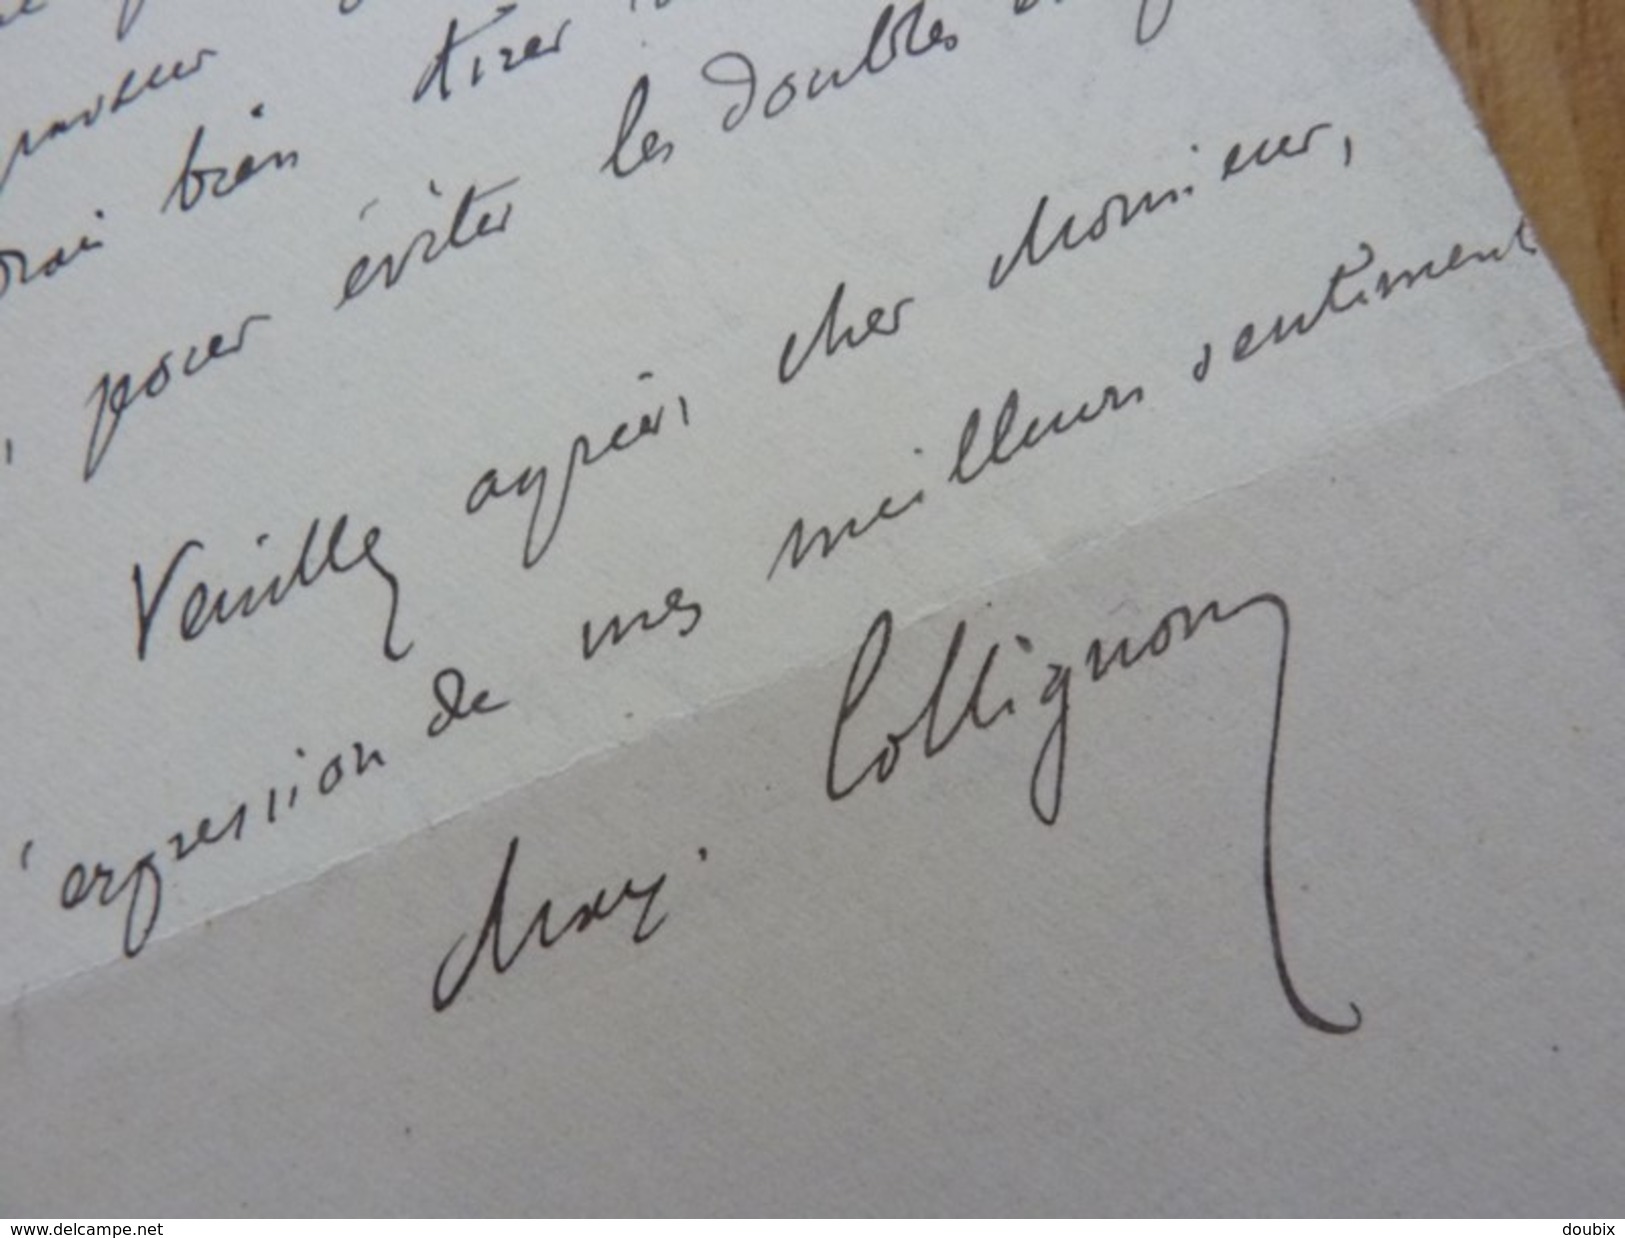 bien tirer
pour éviter les doubles
Veuillez agréer, cher Monsieur,
expression de mes meilleurs sentiments
Max. Collignon
www.delcampe.net
doubix